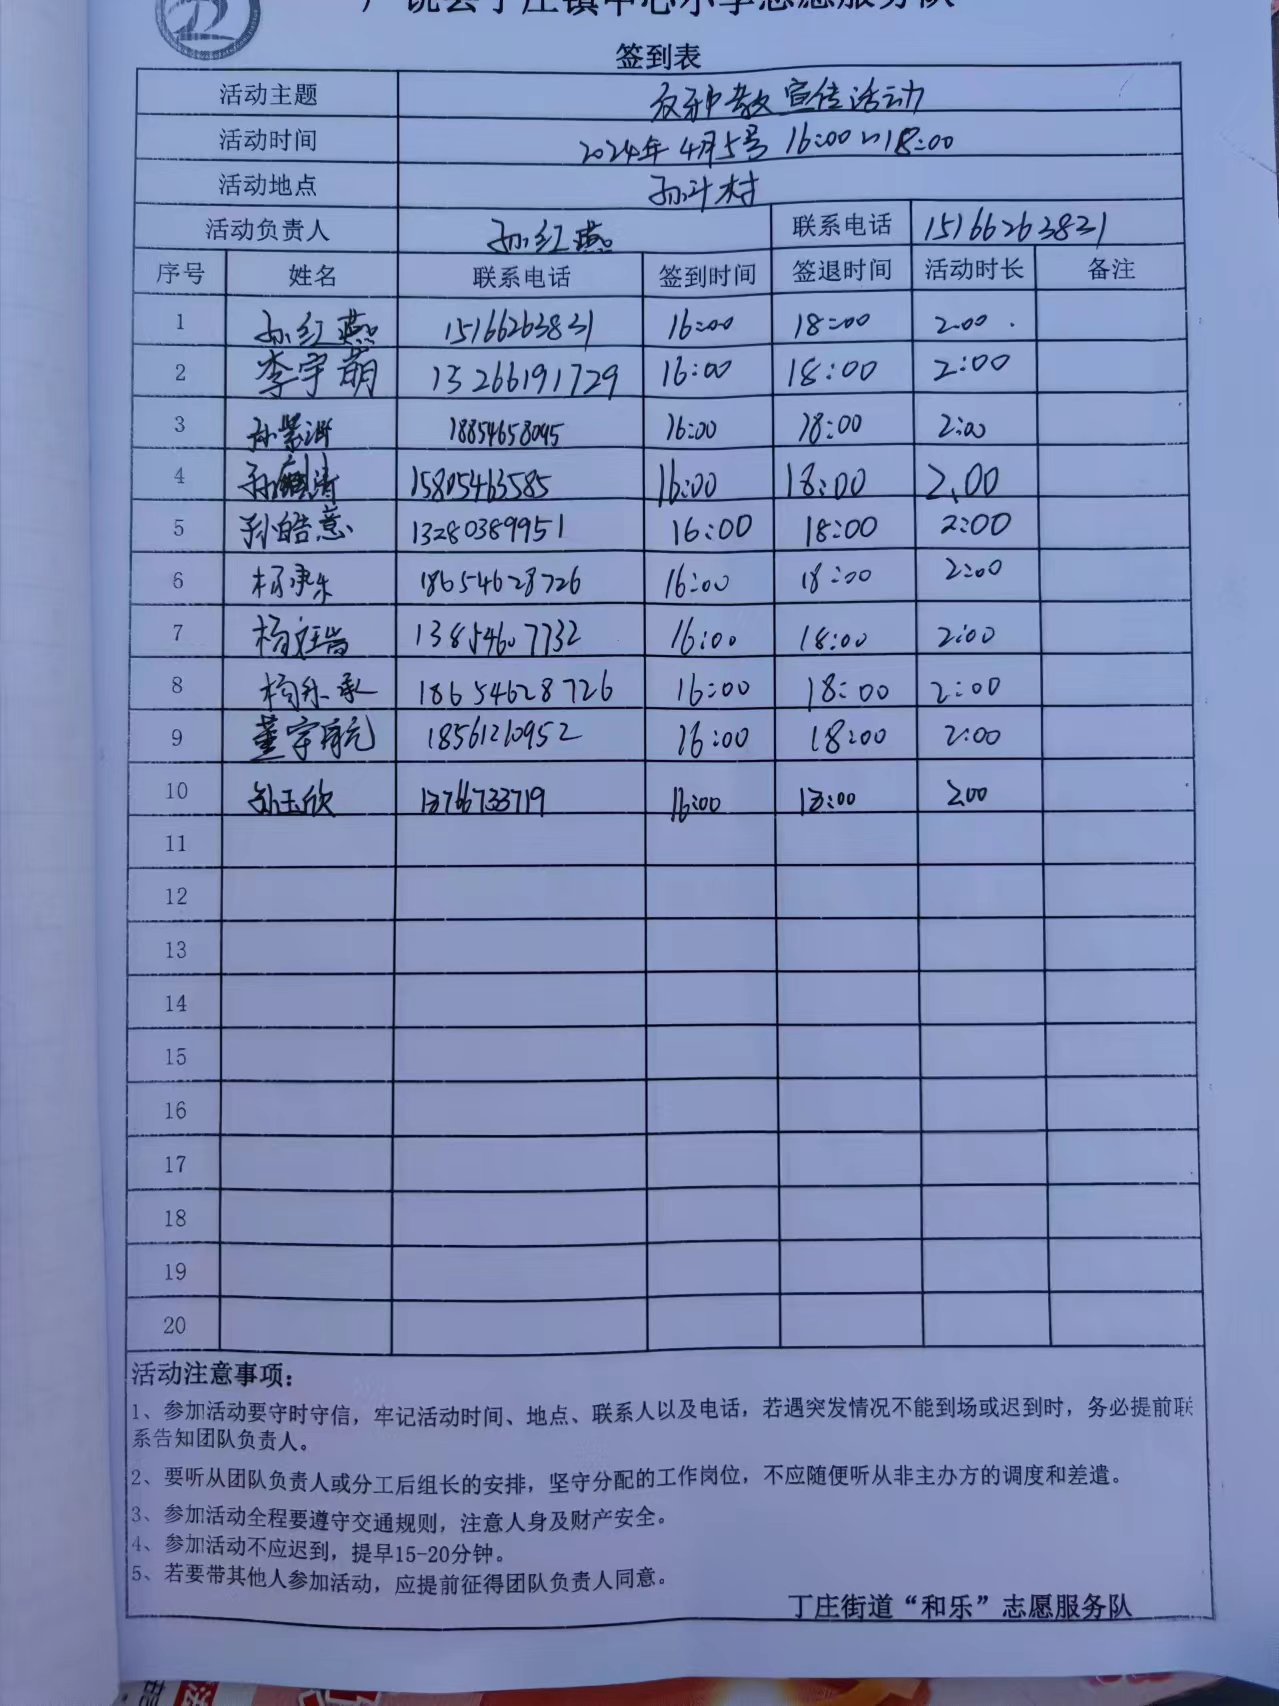 广饶县丁庄镇中心小学志愿服务队
签到表
活动主题 反邪教宣传活动
活动时间 2024年4月5号 16:00~18:00
活动地点 孙斗村
活动负责人 孙红燕 联系电话 15166263831
序号 姓名 联系电话 签到时间 签退时间 活动时长 备注
1 孙红燕 15166263831 16:00 18:00 2:00
2 李宇萌 15266191729 16:00 18:00 2:00
3 18854658095 16:00 18:00 2:00
4 15805463585 16:00 18:00 2.00
5 孙皓意 13280389951 16:00 18:00 2:00
6 杨承乐 18654628726 16:00 18:00 2:00
7 13854607732 16:00 18:00 2:00
8 杨乐承 18654628726 16:00 18:00 2:00
9 董宇航 18561210952 16:00 18:00 2:00
10 孙玉欣 16:00 2:00
11
12
13
14
15
16
17
18
19
20
活动注意事项：
1、参加活动要守时守信，牢记活动时间、地点、联系人以及电话，若遇突发情况不能到场或迟到时，务必提前联
系告知团队负责人。
2、要听从团队负责人或分工后组长的安排，坚守分配的工作岗位，不应随便听从非主办方的调度和差遣。
3、参加活动全程要遵守交通规则，注意人身及财产安全。
4、参加活动不应迟到，提早15-20分钟。
5、若要带其他人参加活动，应提前征得团队负责人同意。
丁庄街道“和乐”志愿服务队